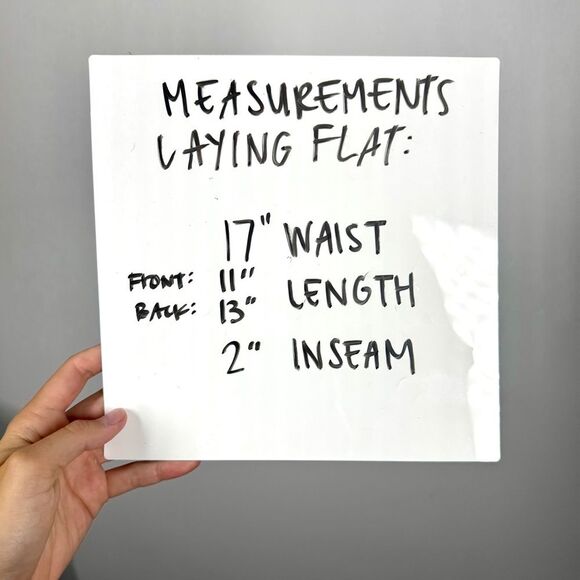 MEASUREMENTS
LAYING FLAT:
17" WAIST
FRONT: 11" LENGTH
BACK: 13"
2" INSEAM